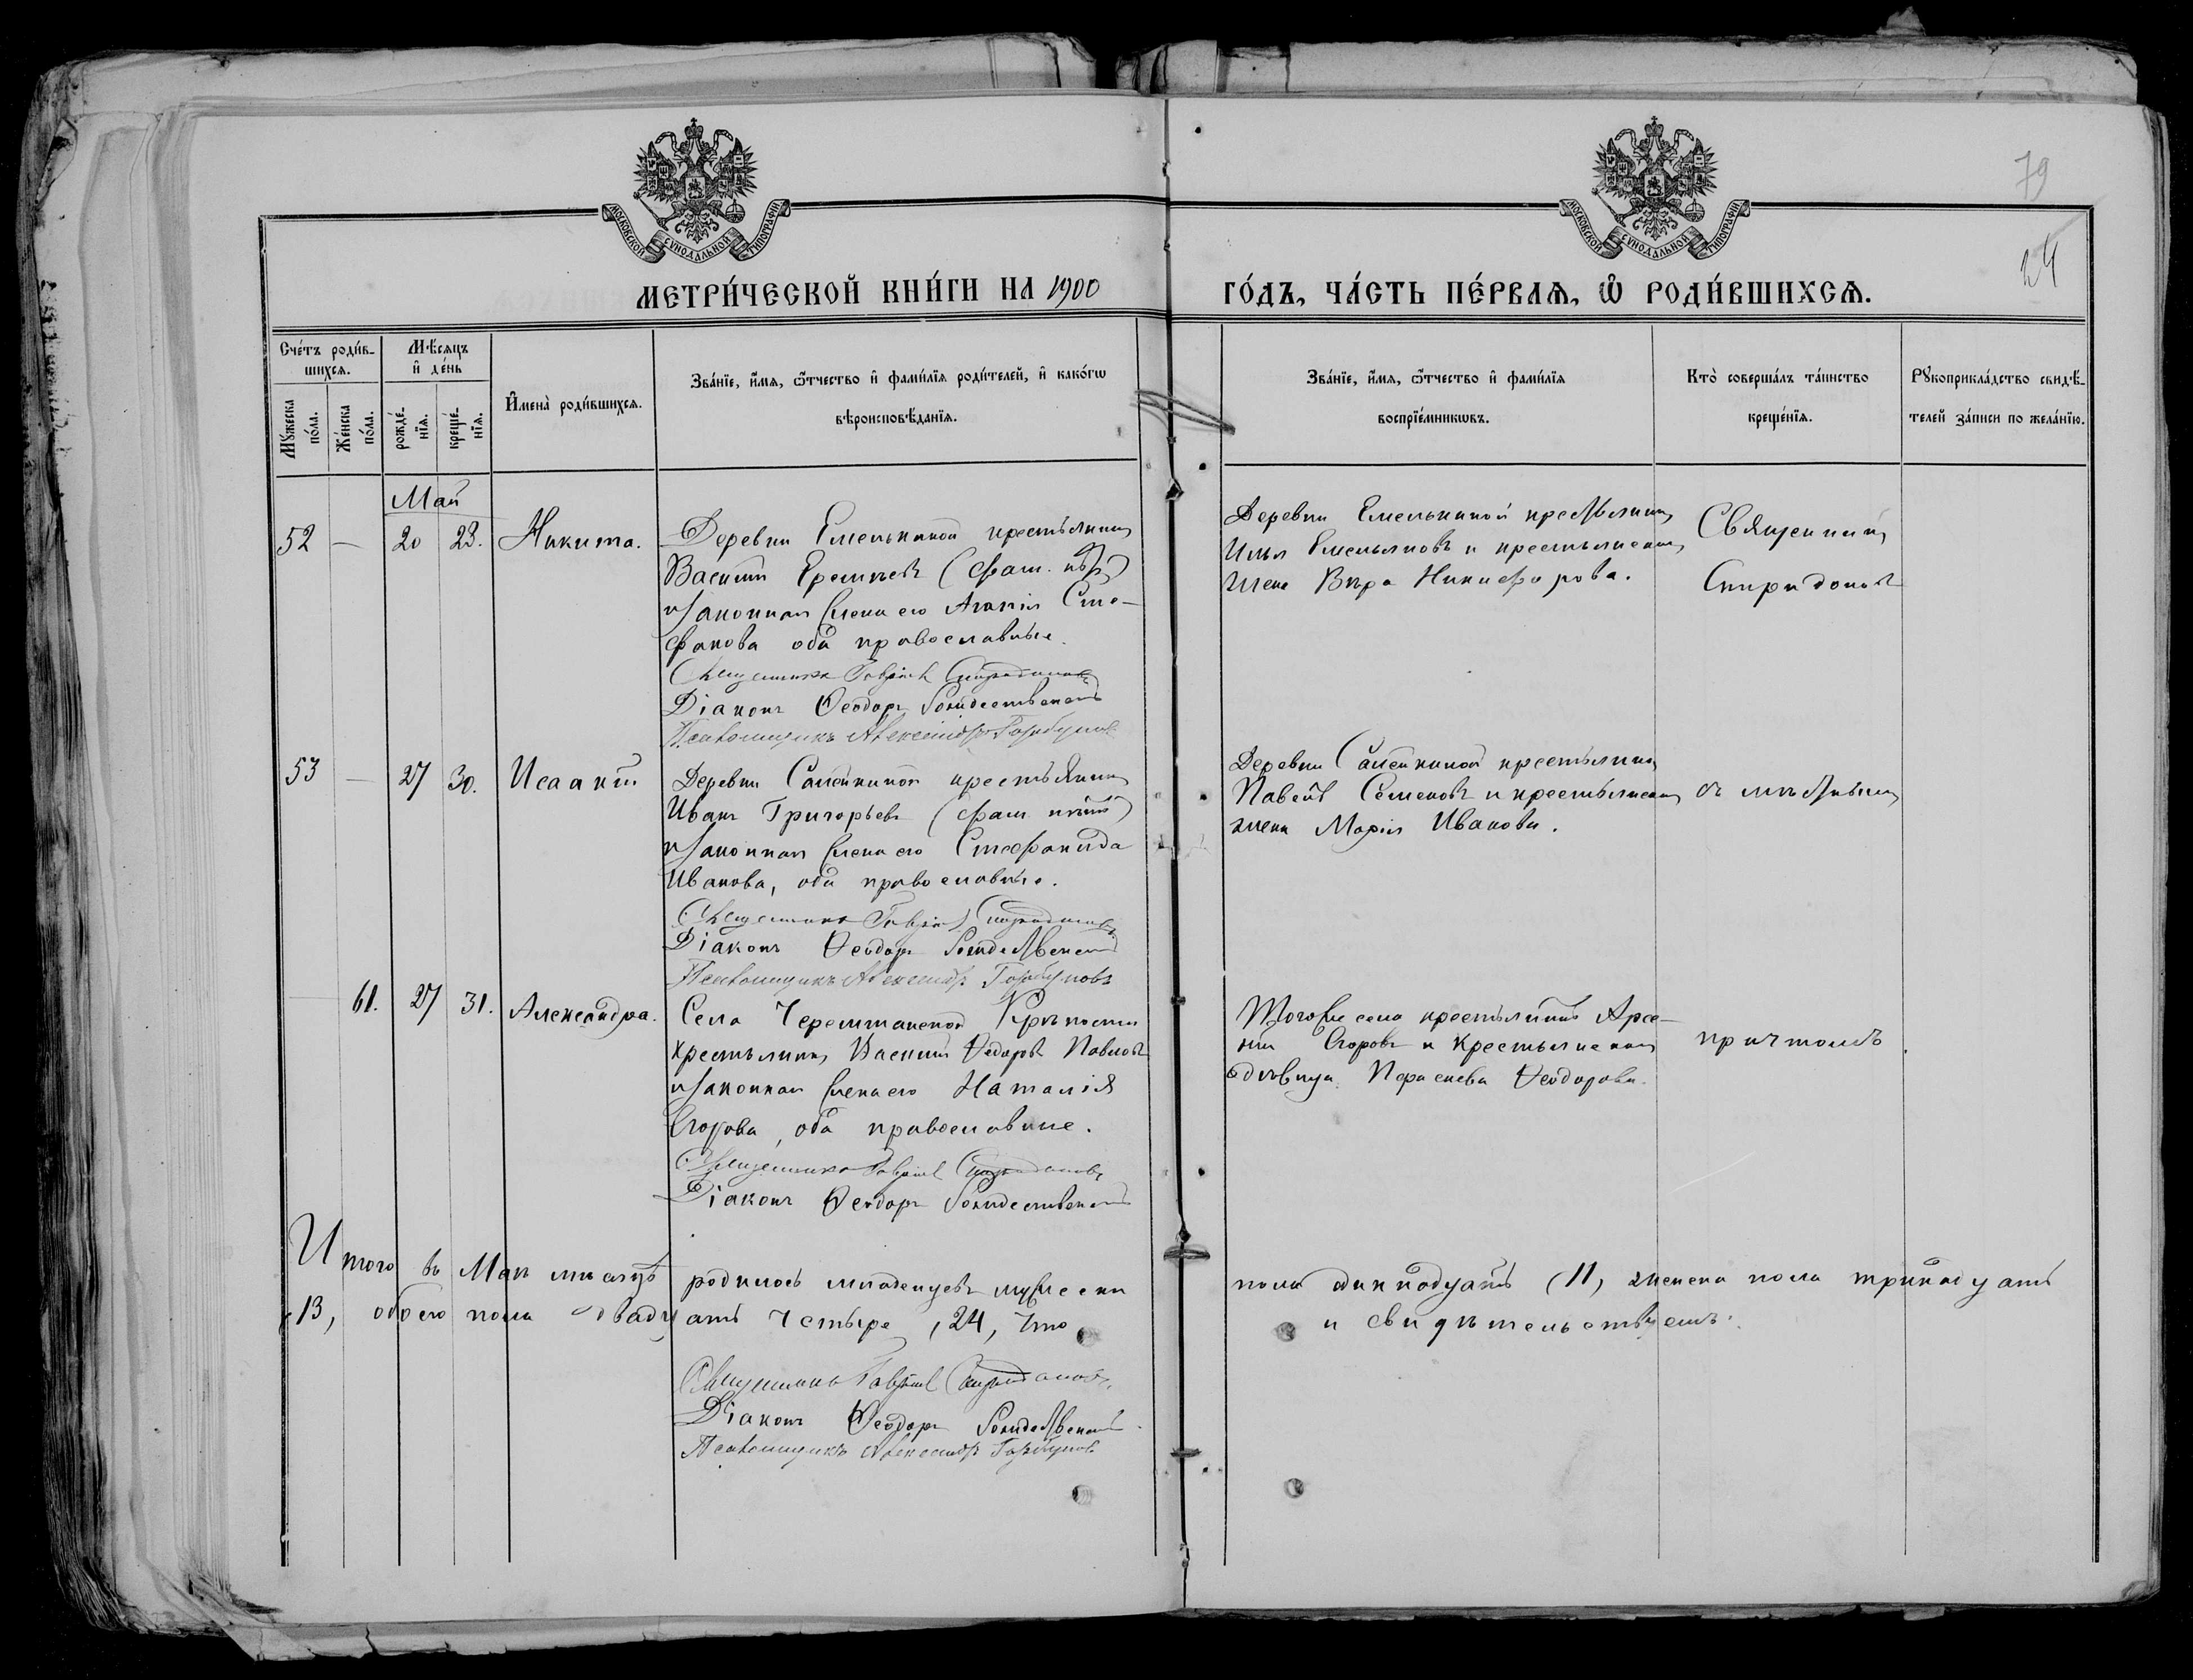 79
24
МОСКОВСКОЙ СѴНОДАЛЬНОЙ ТИПОГРАФІИ
МОСКОВСКОЙ СѴНОДАЛЬНОЙ ТИПОГРАФІИ
МЕТРИ́ЧЕСКОЙ КНИ́ГИ НА 1900
ГО́ДЪ, ЧА́СТЬ ПЕ́РВАѦ, Ѽ РОДИ́ВШИХСѦ.
Сче́тъ роди́в-
шихсѧ.
Мѣ́сѧцъ
и҆ де́нь
Мꙋ́жеска
по́ла.
Же́нска
по́ла.
рожде́-
нїѧ.
креще́-
нїѧ.
И҆мена̀ роди́вшихсѧ.
Зва́нїе, и҆́мѧ, ѻ҆́тчество и҆ фами́лїѧ роди́телей, и҆ како́гѡ
вѣроисповѣ́данїѧ.
Зва́нїе, и҆́мѧ, ѻ҆́тчество и҆ фами́лїѧ
воспрїе́мникѡвъ.
Кто̀ соверша́лъ та́инство
креще́нїѧ.
Рꙋкоприкла́дство свидѣ́-
телей за́писи по жела́нїю.
Май
52 — 20 23. Никита.
Деревни Емелькиной крестьянинъ
Василій Еремѣевъ (фам. нѣтъ)
и законная жена его Агапія Сте-
фанова оба православные.
Священникъ Гавріилъ Спиридоновъ
Діаконъ Ѳеодоръ Рождественскій
Псаломщикъ Александръ Горбуновъ
Деревни Емелькиной крестьянинъ
Илья Емельяновъ и крестьянская
жена Вѣра Никифорова.
Священникъ
Спиридоновъ
53 — 27 30. Исаакій
Деревни Самейкиной крестьянинъ
Иванъ Григорьевъ (фам. нѣтъ)
и законная жена его Стефанида
Иванова, оба православные.
Священникъ Гавріилъ Спиридоновъ
Діаконъ Ѳеодоръ Рождественскій
Псаломщикъ Александръ Горбуновъ
Деревни Самейкиной крестьянинъ
Павелъ Семеновъ и крестьянская
жена Марія Иванова.
съ мѣстнымъ
61. 27 31. Александра.
Села Черемшанской Крѣпости
крестьянинъ Василій Ѳедоровъ Павловъ
и законная жена его Наталія
Егорова, оба православные.
Священникъ Гавріилъ Спиридоновъ
Діаконъ Ѳеодоръ Рождественскій
Тогоже села крестьянинъ Арсе-
ній Егоровъ и крестьянская
дѣвица Параскева Ѳеодорова.
причтомъ.
Итого въ Маѣ мѣсяцѣ родилось младенцевъ мужеска
пола одиннадцать (11, женска пола тринадцать
13, обоего пола двадцать четыре, 24, что
и свидѣтельствуемъ.
Священникъ Гавріилъ Спиридоновъ,
Діаконъ Ѳеодоръ Рождественскій
Псаломщикъ Александръ Горбуновъ